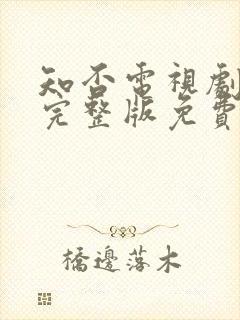 知否電視劇
完整版免費
橋邊落木